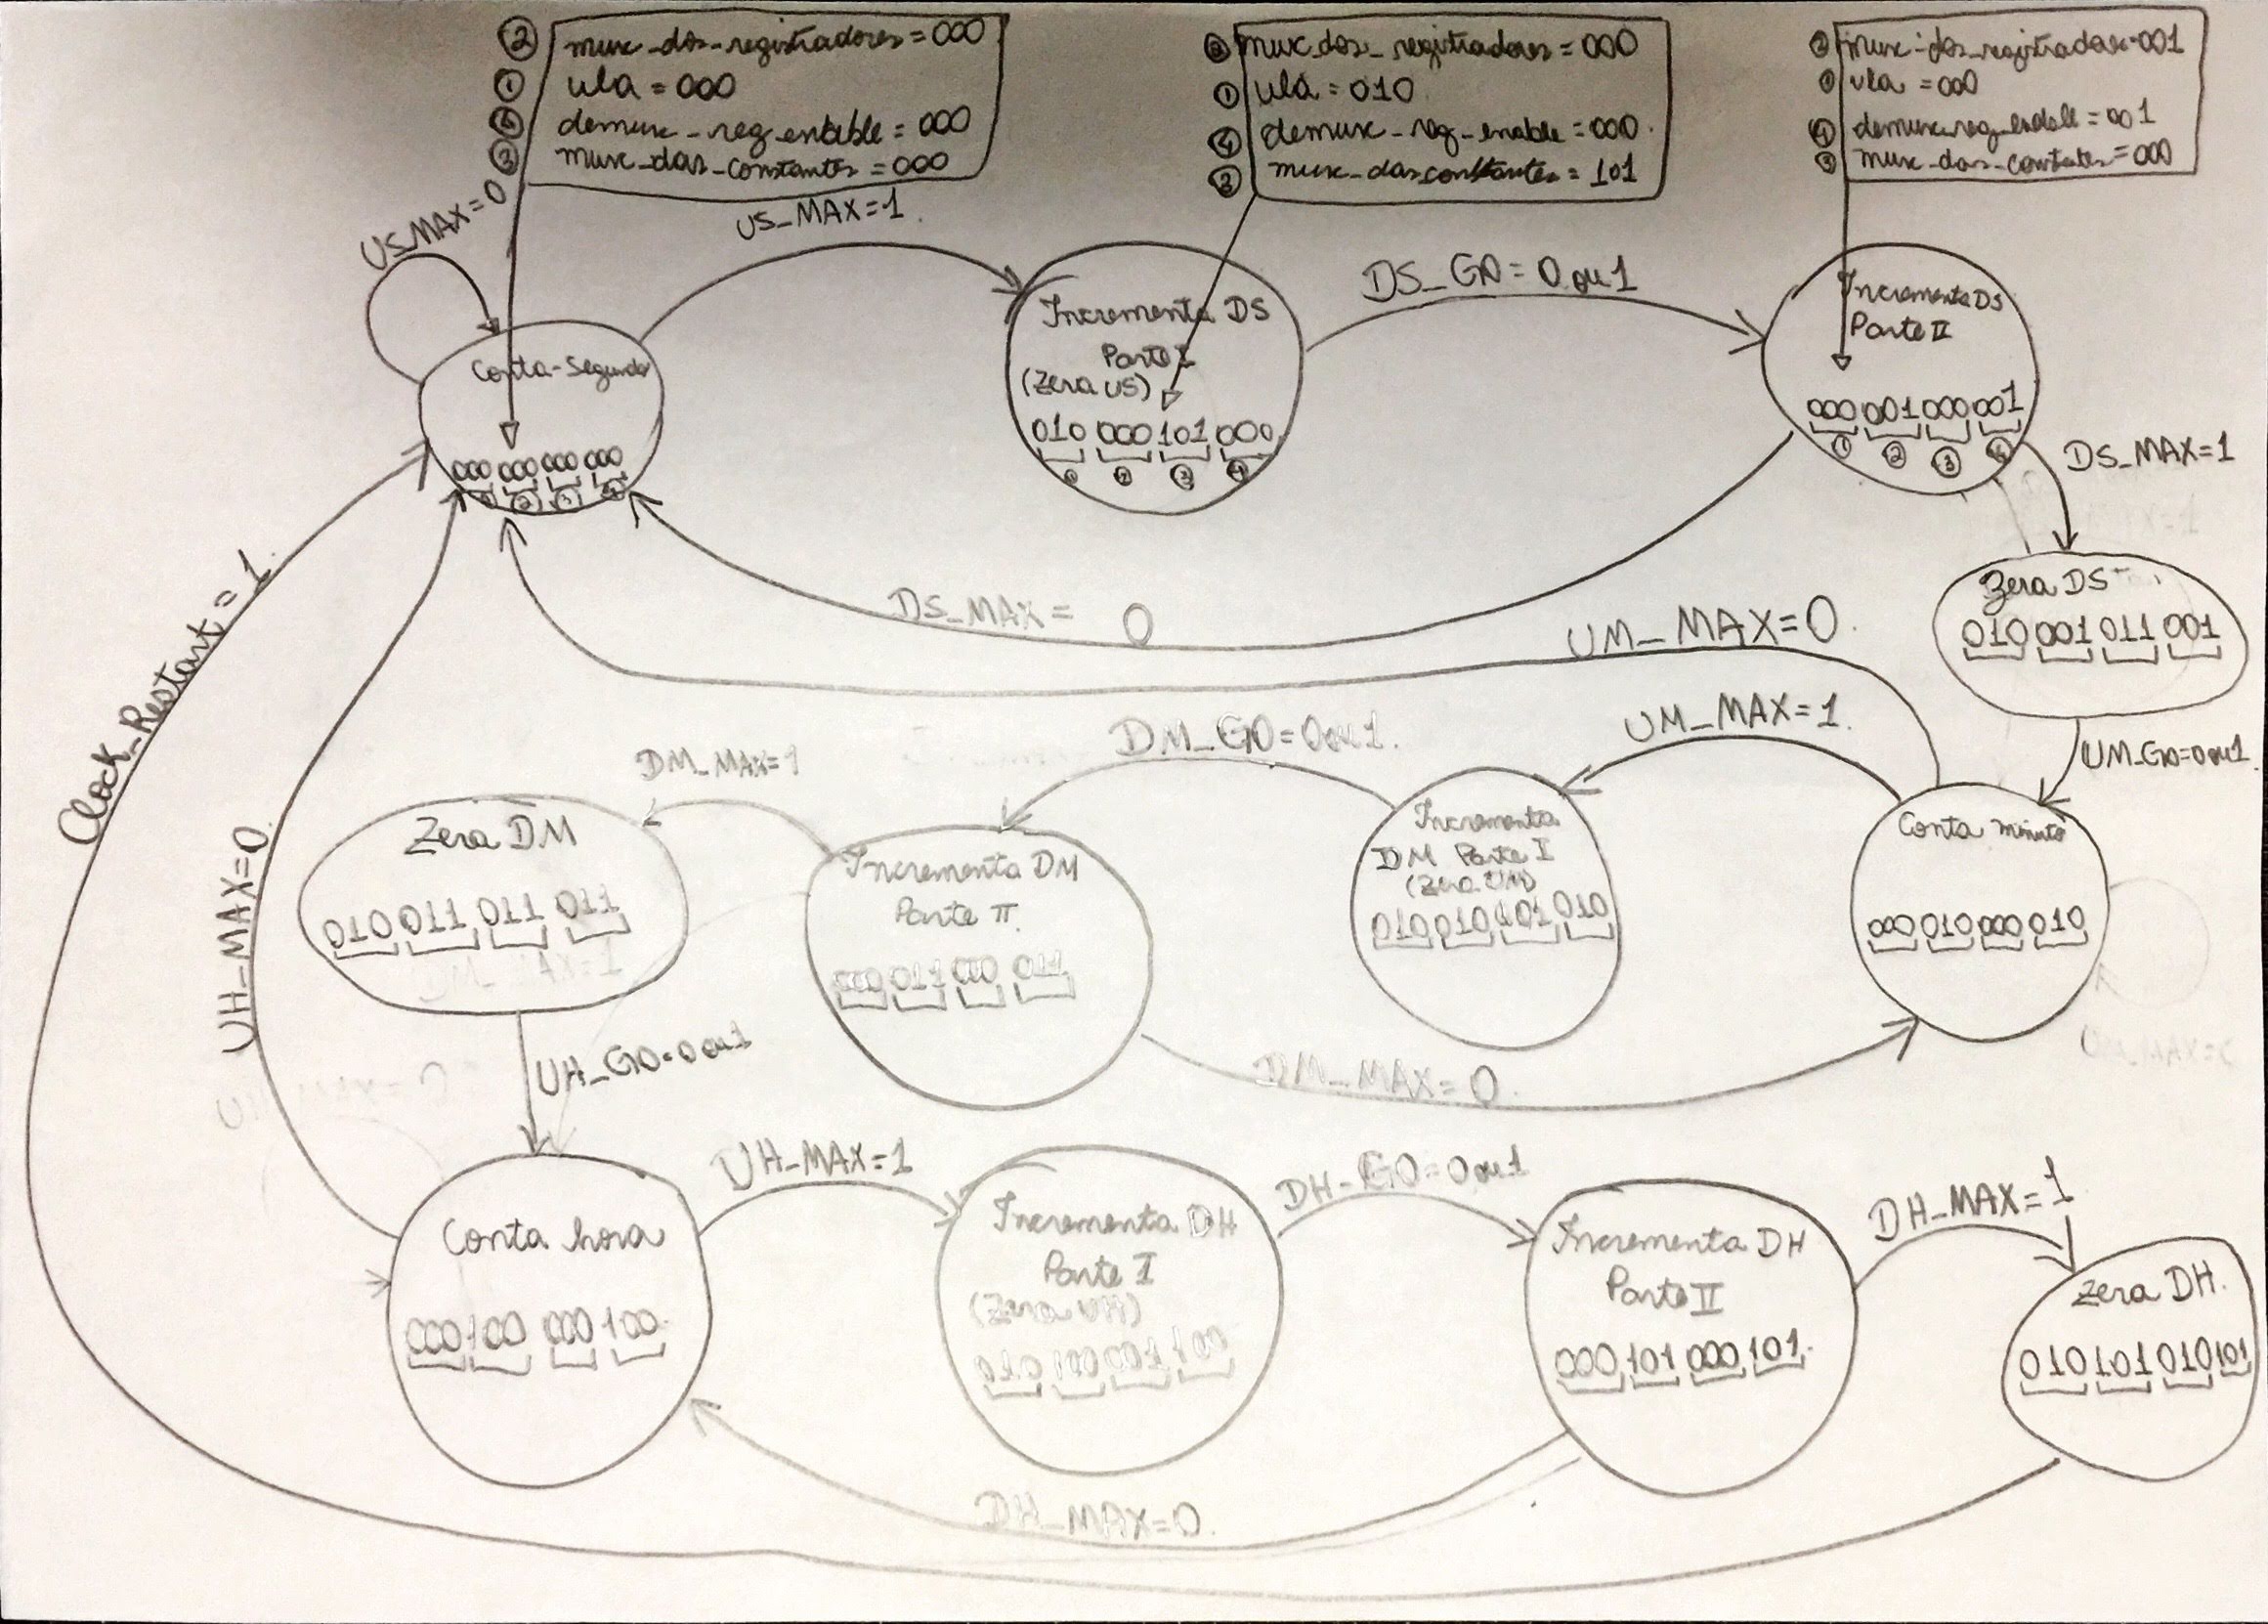 ② mux_dos_registradores = 000
① ula = 000
④ demux_reg_enable = 000
③ mux_das_constantes = 000
② mux_dos_registradores = 000
① ula = 010
④ demux_reg_enable = 000
③ mux_das_constantes = 101
② mux_dos_registradores = 001
① ula = 000
④ demux_reg_enable = 001
③ mux_das_constantes = 000
US_MAX=0
US_MAX=1
DS_GO=0 ou 1
Conta-Segundo
000 000 000 000
① ② ③ ④
Incrementa DS
Parte I
(Zera US)
010 000 101 000
① ② ③ ④
Incrementa DS
Parte II
000 001 000 001
① ② ③ ④
DS_MAX=1
DS_MAX= 0
Zera DS
010 001 011 001
UM_MAX=0
UM_GO=0 ou 1
Clock_Restart=1
UM_MAX=1
DM_GO=0 ou 1
DM_MAX=1
Zera DM
010 011 011 011
Incrementa DM
Parte II
000 011 000 011
Incrementa
DM Parte I
(Zera UM)
010 010 101 010
Conta minuto
000 010 000 010
UH_MAX=0
UH_GO=0 ou 1
DM_MAX=0
UH_MAX=1
DH_GO=0 ou 1
DH_MAX=1
Conta hora
000 100 000 100
Incrementa DH
Parte I
(Zera UH)
010 100 001 100
Incrementa DH
Parte II
000 101 000 101
Zera DH
010 101 010 101
DH_MAX=0